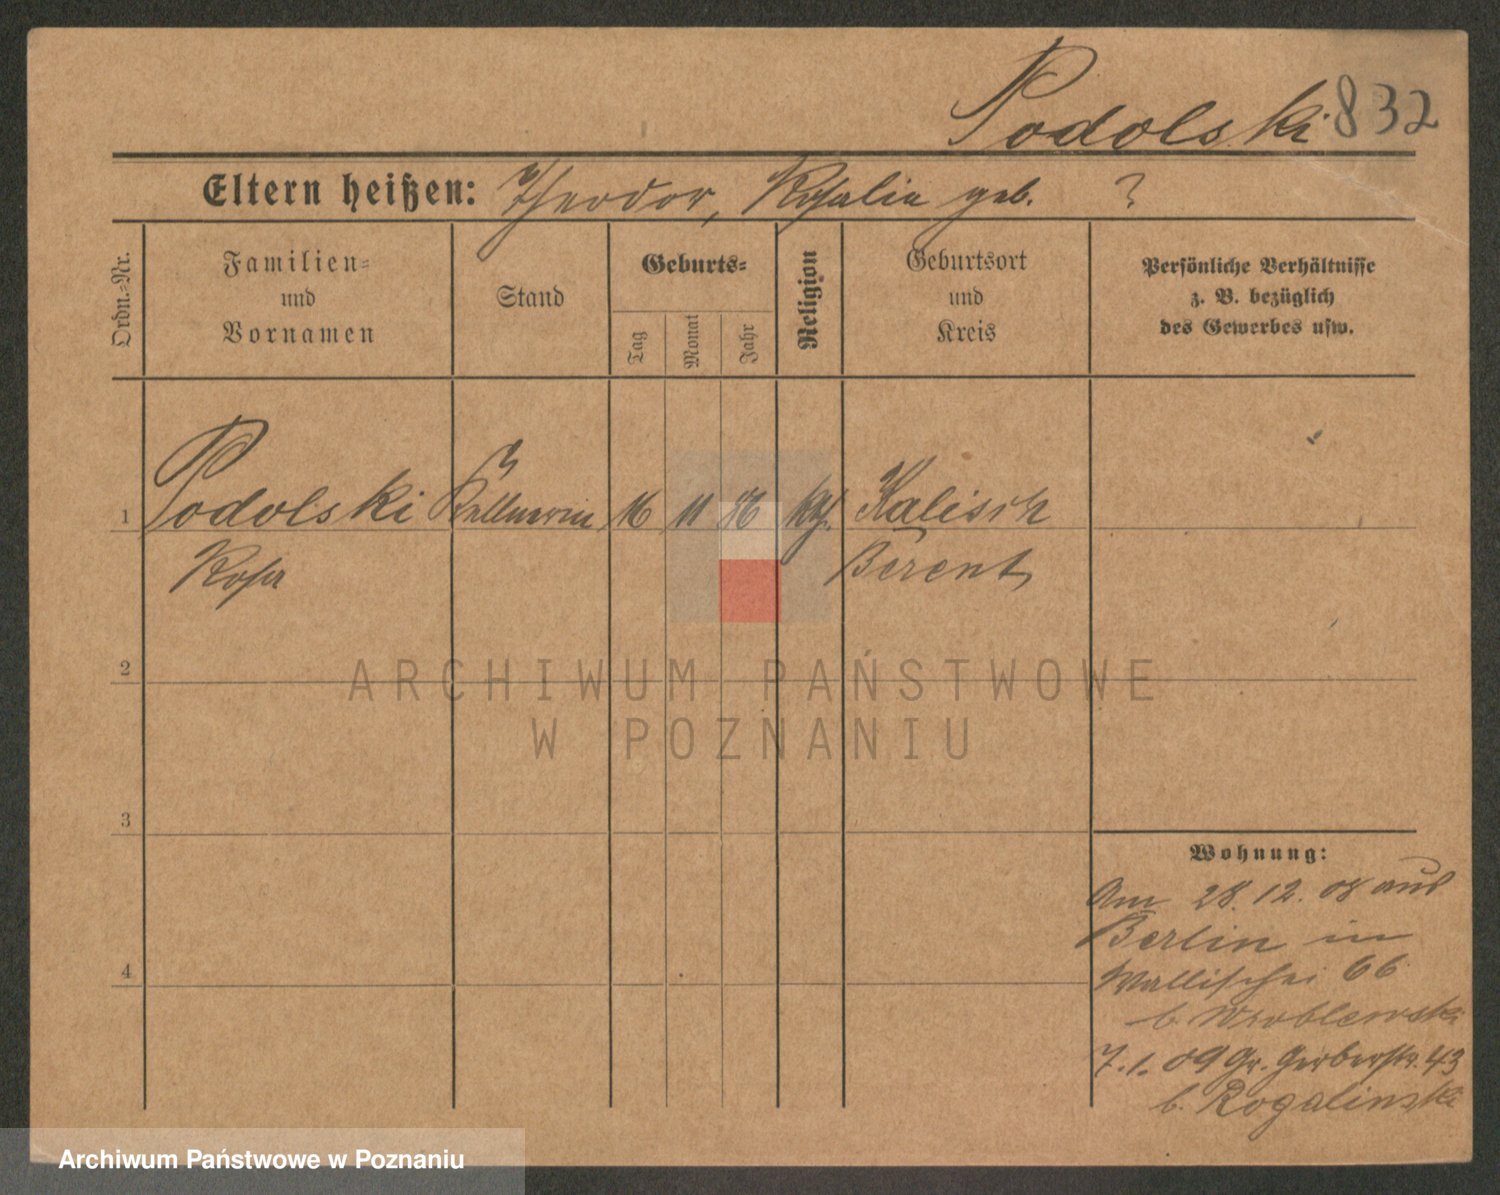 Podolski 832
Eltern heißen: Theodor, Rosalie geb. ?
Ordn.-Nr.
Familien-
und
Vornamen
Stand
Geburts-
Tag
Monat
Jahr
Religion
Geburtsort
und
Kreis
Persönliche Verhältnisse
z. B. bezüglich
des Gewerbes usw.
1 Podolski Kellnerin 16 11 86 kth. Kalisch
Rosa Berent
2
3
4
Wohnung:
Am 28.12.08 aus
Berlin in
Wallischei 66
b. Wroblewski
7.1.09 Gr. Gerberstr. 43
b. Rogalinski
ARCHIWUM PAŃSTWOWE
W POZNANIU
Archiwum Państwowe w Poznaniu